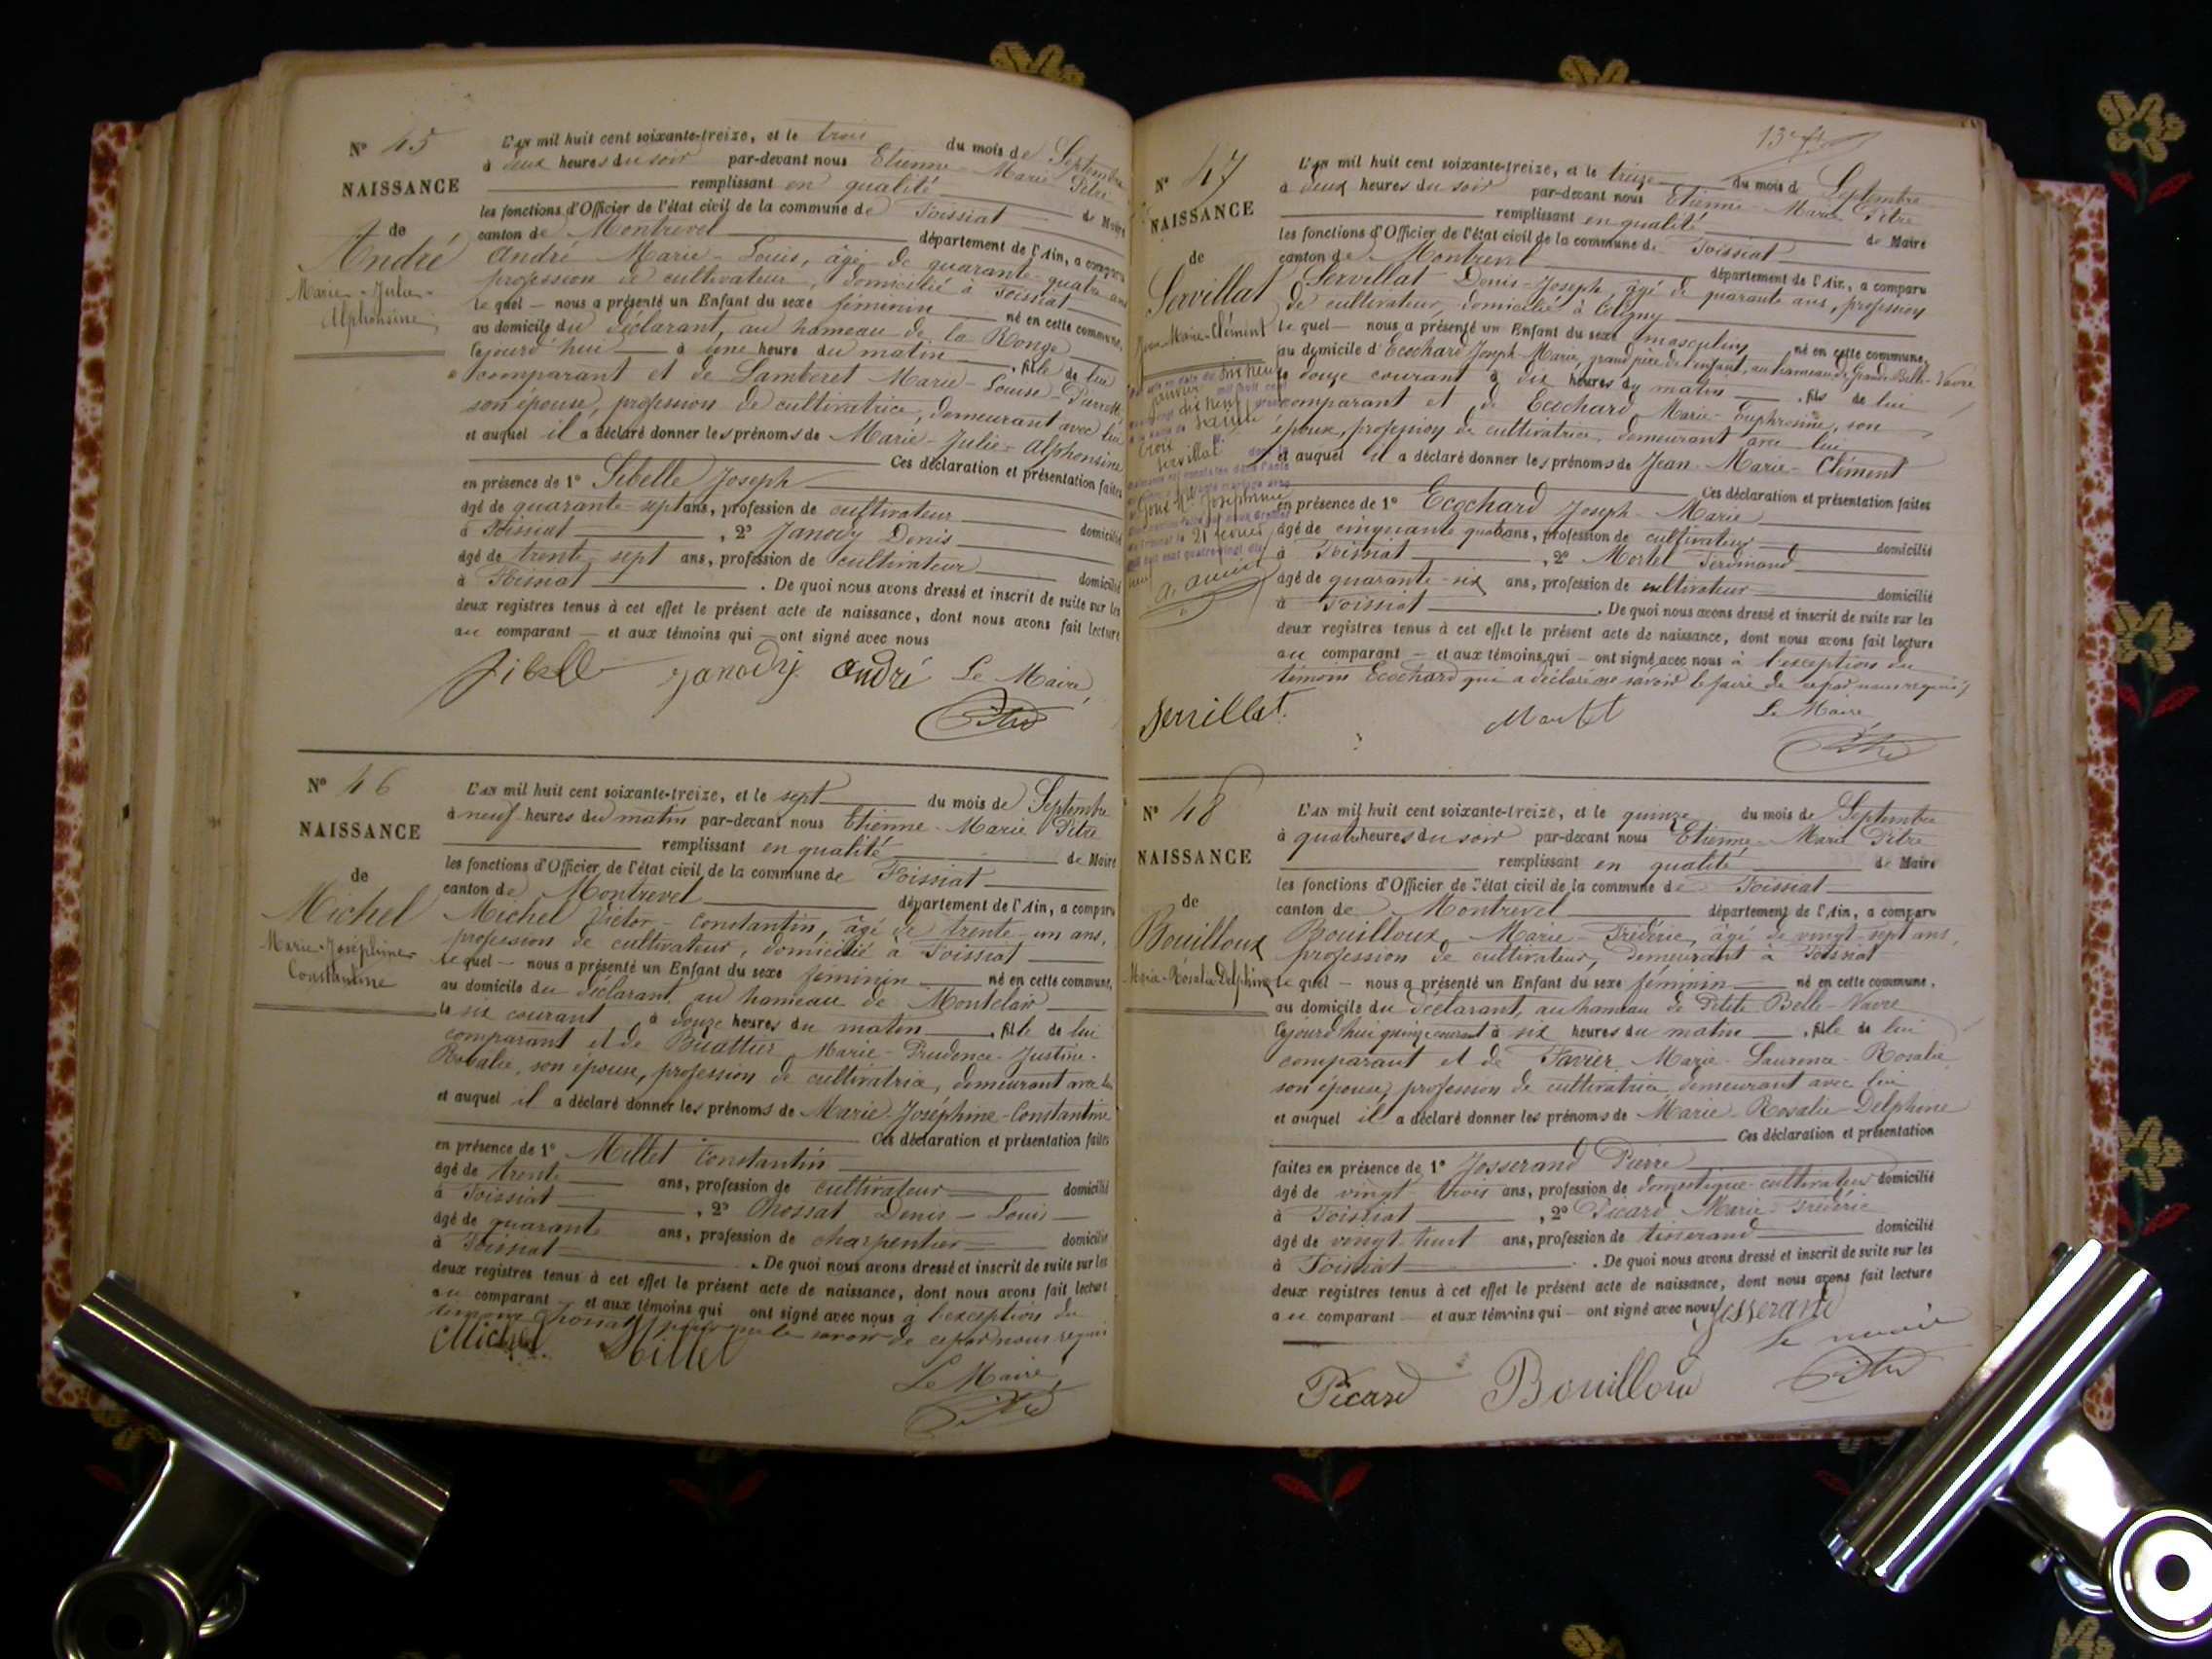 N° 45
NAISSANCE
de
André
Marie-Julie-
Alphonsine
L'AN mil huit cent soixante-treize, et le trois du mois de Septembre
à deux heures du soir par-devant nous Etienne-Marie Pitre
remplissant en qualité de Maire
les fonctions d'Officier de l'état civil de la commune de Foissiat
canton de Montrevel département de l'Ain, a comparu
André Marie-Louis, âgé de quarante-quatre ans
profession de cultivateur, domicilié à Foissiat
le quel — nous a présenté un Enfant du sexe féminin né en cette commune,
au domicile du déclarant, au hameau de la Ronge
cejourd'hui à une heure du matin, fille de lui
comparant et de Lamberet Marie-Louise-Pierrette
son épouse, profession de cultivatrice, demeurant avec lui
et auquel il a déclaré donner les prénoms de Marie-Julie-Alphonsine
Ces déclaration et présentation faites
en présence de 1° Sibelle Joseph
âgé de quarante-sept ans, profession de cultivateur domicilié
à Foissiat, 2° Janody Denis
âgé de trente-sept ans, profession de cultivateur domicilié
à Foissiat. De quoi nous avons dressé et inscrit de suite sur les
deux registres tenus à cet effet le présent acte de naissance, dont nous avons fait lecture
au comparant — et aux témoins qui — ont signé avec nous
Sibelle Janody André Le Maire
Pitre
N° 46
NAISSANCE
de
Michel
Marie-Joséphine-
Constantine
L'AN mil huit cent soixante-treize, et le sept du mois de Septembre
à neuf heures du matin par-devant nous Etienne-Marie Pitre
remplissant en qualité de Maire
les fonctions d'Officier de l'état civil de la commune de Foissiat
canton de Montrevel département de l'Ain, a comparu
Michel Victor-Constantin, âgé de trente-un ans,
profession de cultivateur, domicilié à Foissiat
le quel — nous a présenté un Enfant du sexe féminin né en cette commune,
au domicile du déclarant, au hameau de Montclair
le six courant à douze heures du matin, fille de lui
comparant et de Buattier Marie-Prudence-Justine-
Rosalie, son épouse, profession de cultivatrice, demeurant avec lui
et auquel il a déclaré donner les prénoms de Marie-Joséphine-Constantine
Ces déclaration et présentation faites
en présence de 1° Millet Constantin
âgé de trente ans, profession de cultivateur domicilié
à Foissiat, 2° Chossat Denis-Louis
âgé de quarante ans, profession de charpentier domicilié
à Foissiat. De quoi nous avons dressé et inscrit de suite sur les
deux registres tenus à cet effet le présent acte de naissance, dont nous avons fait lecture
au comparant — et aux témoins qui ont signé avec nous à l'exception du
témoin Chossat savoir de ce par nous requis
Michel Millet
Le Maire
Pitre
N° 47
NAISSANCE
de
Servillat
Jean-Marie-Clément
dix neuf
janvier mil huit cent
dix neuf
trois
Servillat
Joséphine
21 février
mil huit cent quatre vingt dix
L'AN mil huit cent soixante-treize, et le treize du mois de Septembre
à deux heures du soir par-devant nous Etienne-Marie Pitre
remplissant en qualité de Maire
les fonctions d'Officier de l'état civil de la commune de Foissiat
canton de Montrevel département de l'Ain, a comparu
Servillat Denis-Joseph, âgé de quarante ans, profession
de cultivateur, domicilié à Coligny
le quel — nous a présenté un Enfant du sexe masculin né en cette commune,
au domicile d'Ecochard Joseph-Marie, grand père de l'enfant, au hameau de Grande Belle-Vavre
le douze courant à dix heures du matin, fils de lui
comparant et de Ecochard Marie-Euphrosine, son
épouse, profession de cultivatrice, demeurant avec lui
et auquel il a déclaré donner les prénoms de Jean-Marie-Clément
Ces déclaration et présentation faites
en présence de 1° Ecochard Joseph-Marie
âgé de cinquante quatre ans, profession de cultivateur domicilié
à Foissiat, 2° Mortel Ferdinand
âgé de quarante-six ans, profession de cultivateur domicilié
à Foissiat. De quoi nous avons dressé et inscrit de suite sur les
deux registres tenus à cet effet le présent acte de naissance, dont nous avons fait lecture
au comparant — et aux témoins qui — ont signé avec nous à l'exception du
témoin Ecochard qui a déclaré ne savoir le faire de ce par nous requis
Servillat Mortel Le Maire
Pitre
N° 48
NAISSANCE
de
Bouilloux
Marie-Rosalie-Delphine
L'AN mil huit cent soixante-treize, et le quinze du mois de Septembre
à quatre heures du soir par-devant nous Etienne-Marie Pitre
remplissant en qualité de Maire
les fonctions d'Officier de l'état civil de la commune de Foissiat
canton de Montrevel département de l'Ain, a comparu
Bouilloux Marie-Frédéric, âgé de vingt-sept ans,
profession de cultivateur, demeurant à Foissiat
le quel — nous a présenté un Enfant du sexe féminin né en cette commune,
au domicile du déclarant, au hameau de Petite Belle-Vavre
cejourd'hui quinze courant à six heures du matin, fille de lui
comparant et de Favier Marie-Laurence-Rosalie
son épouse, profession de cultivatrice, demeurant avec lui
et auquel il a déclaré donner les prénoms de Marie-Rosalie-Delphine
Ces déclaration et présentation
faites en présence de 1° Josserand Pierre
âgé de vingt-trois ans, profession de domestique-cultivateur domicilié
à Foissiat, 2° Picard Marie-Frédéric
âgé de vingt-huit ans, profession de tisserand domicilié
à Foissiat. De quoi nous avons dressé et inscrit de suite sur les
deux registres tenus à cet effet le présent acte de naissance, dont nous avons fait lecture
au comparant — et aux témoins qui — ont signé avec nous Josserand
le maire
Picard Bouilloux Pitre